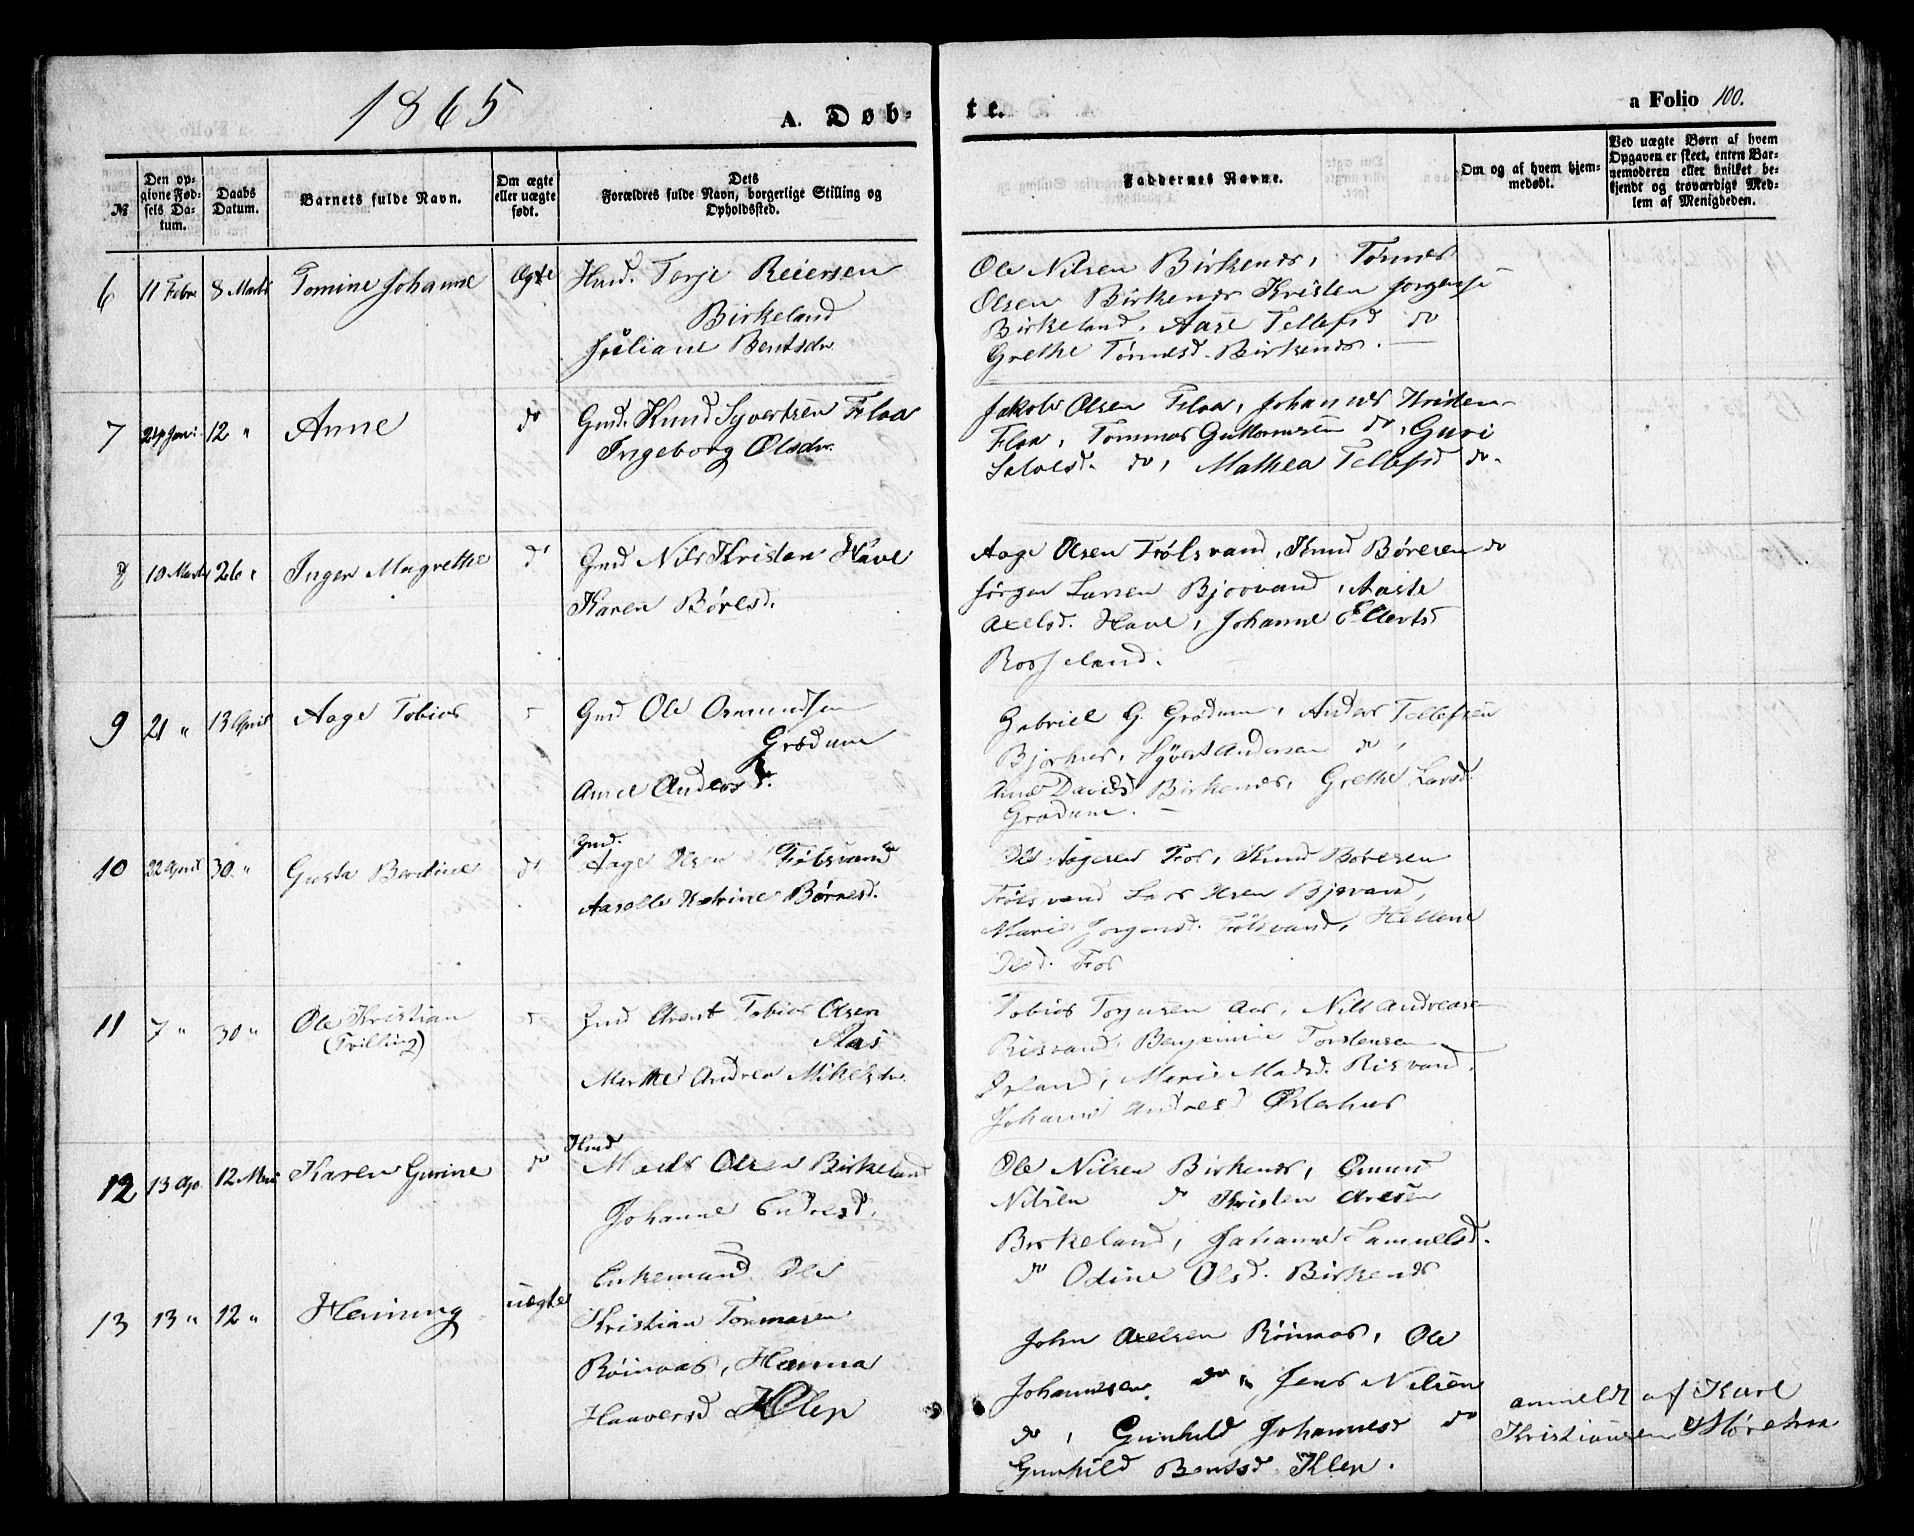 1865
A. Døb-
te.
a Folio 100.
№
Den op-
givne Fød-
sels Da-
tum.
Daabs
Datum.
Barnets fulde Navn.
Om ægte
eller uægte
født.
Dets
Forældres fulde Navn, borgerlige Stilling og
Opholdssted.
Faddernes Navne.
Om og af hvem hjem-
medøbt.
Ved uægte Børn af hvem
Opgaven er skeet, enten Bar-
nemoderen eller hvilket be-
kjendt og troværdigt Med-
lem af Menigheden.
6 11 Febr 8 Marts Tomine Johanne Ægte Hmd. Terje Reiersen
Birkeland
Juliane Bentsdr.
Ole Nilsen Birkenes, Tønnes
Olsen Birkenes Kristen Jørgense
Birkeland, Aase Tellefsd do
Grethe Tønnesd. Birkenes.
7 24 Janr. 12 " Anne do Gmd. Knud Syvertsen Flaa
Ingeborg Olsdr.
Jakob Olsen Flaa, Johannes Kristen-
Flaa, Tommas Guttormsen do, Guri
Salvesd. do, Mathea Tellefsd do.
8 10 Marts 26 " Inger Magrethe do Gmd Nils Kristen Have
Karen Børesd.
Aage Olsen Følsvand, Knud Børesen do
Jørgen Larsen Bjorvand, Aaste
Axelsd. Have, Johanne Ellertsd
Rosseland.
9 21 " 13 April Aage Tobias Gmd Ole Osmundsen
Grødum
Anne Andersd.
Gabriel G. Grødum, Anders Tellefsen
Bjorhus, Syvert Andersen do,
Anne Davidsd Birkenes, Grethe Larsd.
Grødum.
10 22 April 30 " Gusta Berdine do Gmd.
Aage Olsen Følsvand
Aasille Katrine Børresd.
Ole Aagesen Fos, Knud Børesen
Følsvand Lars Olsen Bjorvand,
Marie Jorgensd. Følsvand, Hellene
Olsd. Fos
11 7 " 30 " Ole Kristian
(Tvilling)
Gmd Arent Tobias Olsen
Aas
Marthe Andrea Mikelsdr.
Tobias Torjusen Aas, Nils Andreasen
Risvand, Benjamin Torstensen
Marie Madsd. Risvand,
Johanne Andresd Østerhus
12 13 Ap. 12 Mai Karen Gurine do Hmd
Mads Olsen Birkeland
Johanne Endresd.
Ole Nilsen Birkenes, Omund
Nilsen do Kristen Aresen
Birkeland, Johanne Samuelsd.
do Odine Olsd. Birkenes
13 13 " 12 " Henning uægte Enkemand Ole
Kristian Tommasen
Røinaas, Hanna
Haaversd Klep
John Axelsen Røinaas, Ole
Johannesen do, Jens Nilsen
do, Gunhild Johannesd do
Gunhild Bentsd Klep.
anmeldt af Karl
Kristiansen